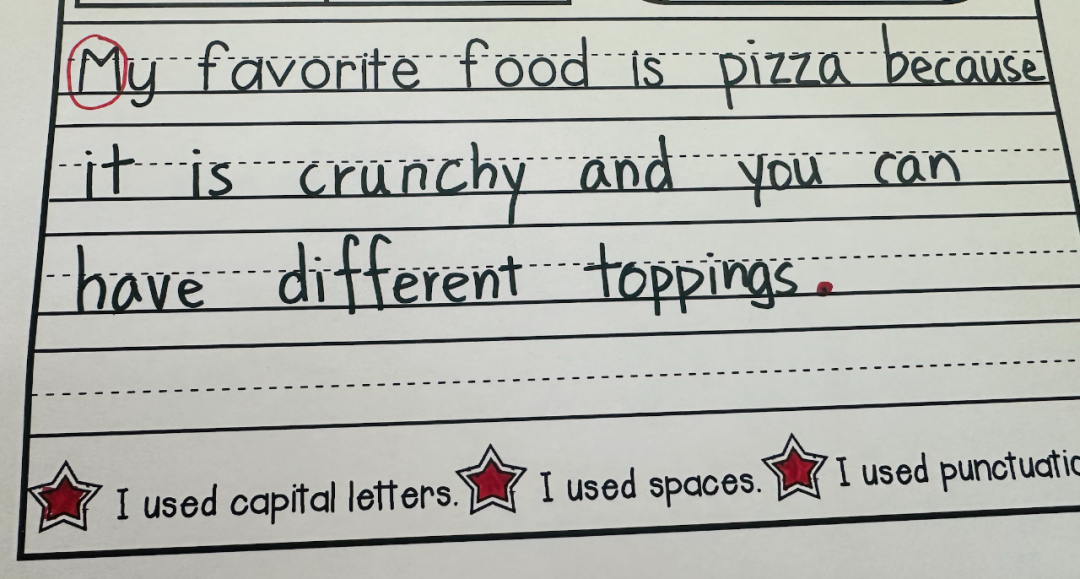 My favorite food is pizza because
it is crunchy and you can
have different toppings.
I used capital letters. I used spaces. I used punctuatio